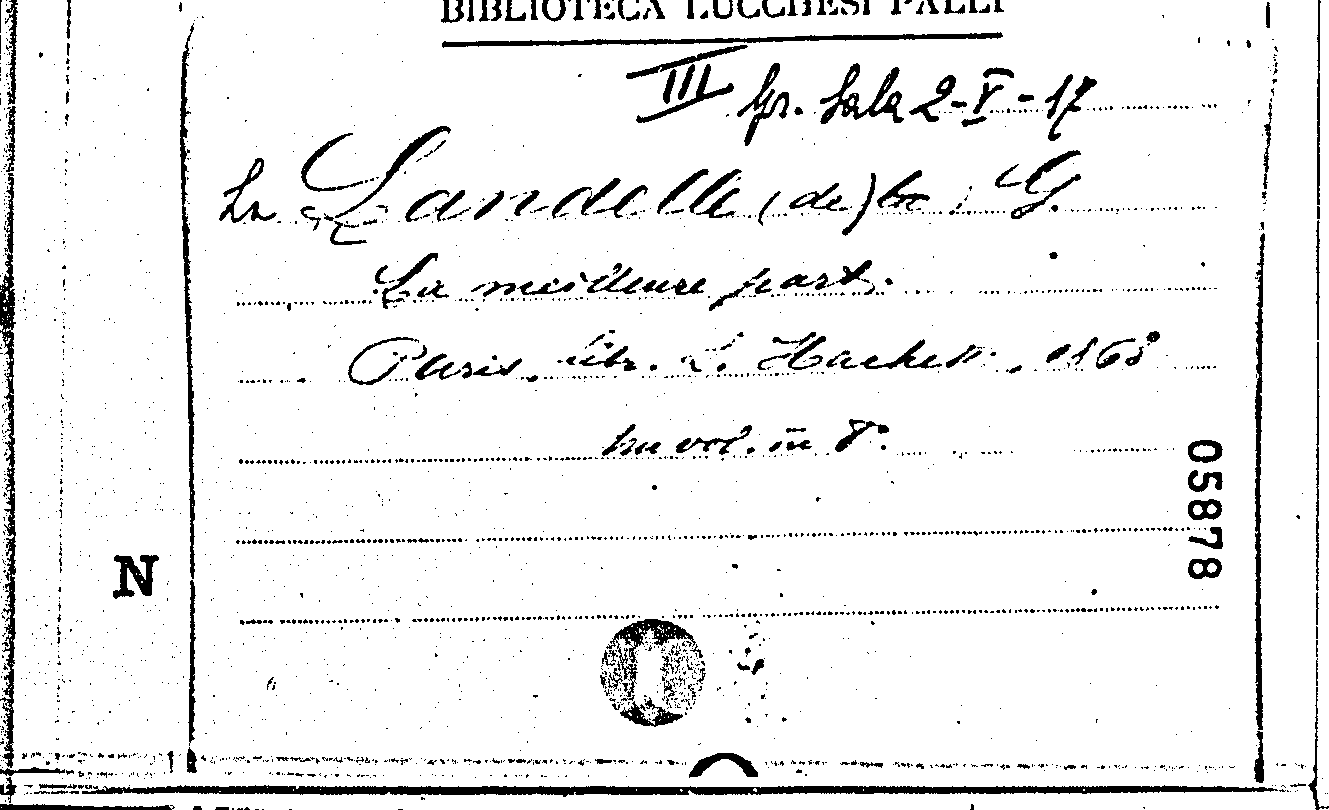 BIBLIOTECA LUCCHESI PALLI
III Gr. Sala 2-V-17
La Landelle (de) la, G.
La meilleure part.
Paris, libr. L. Hachette, 1868
un vol. in 8°.
05878
N
6